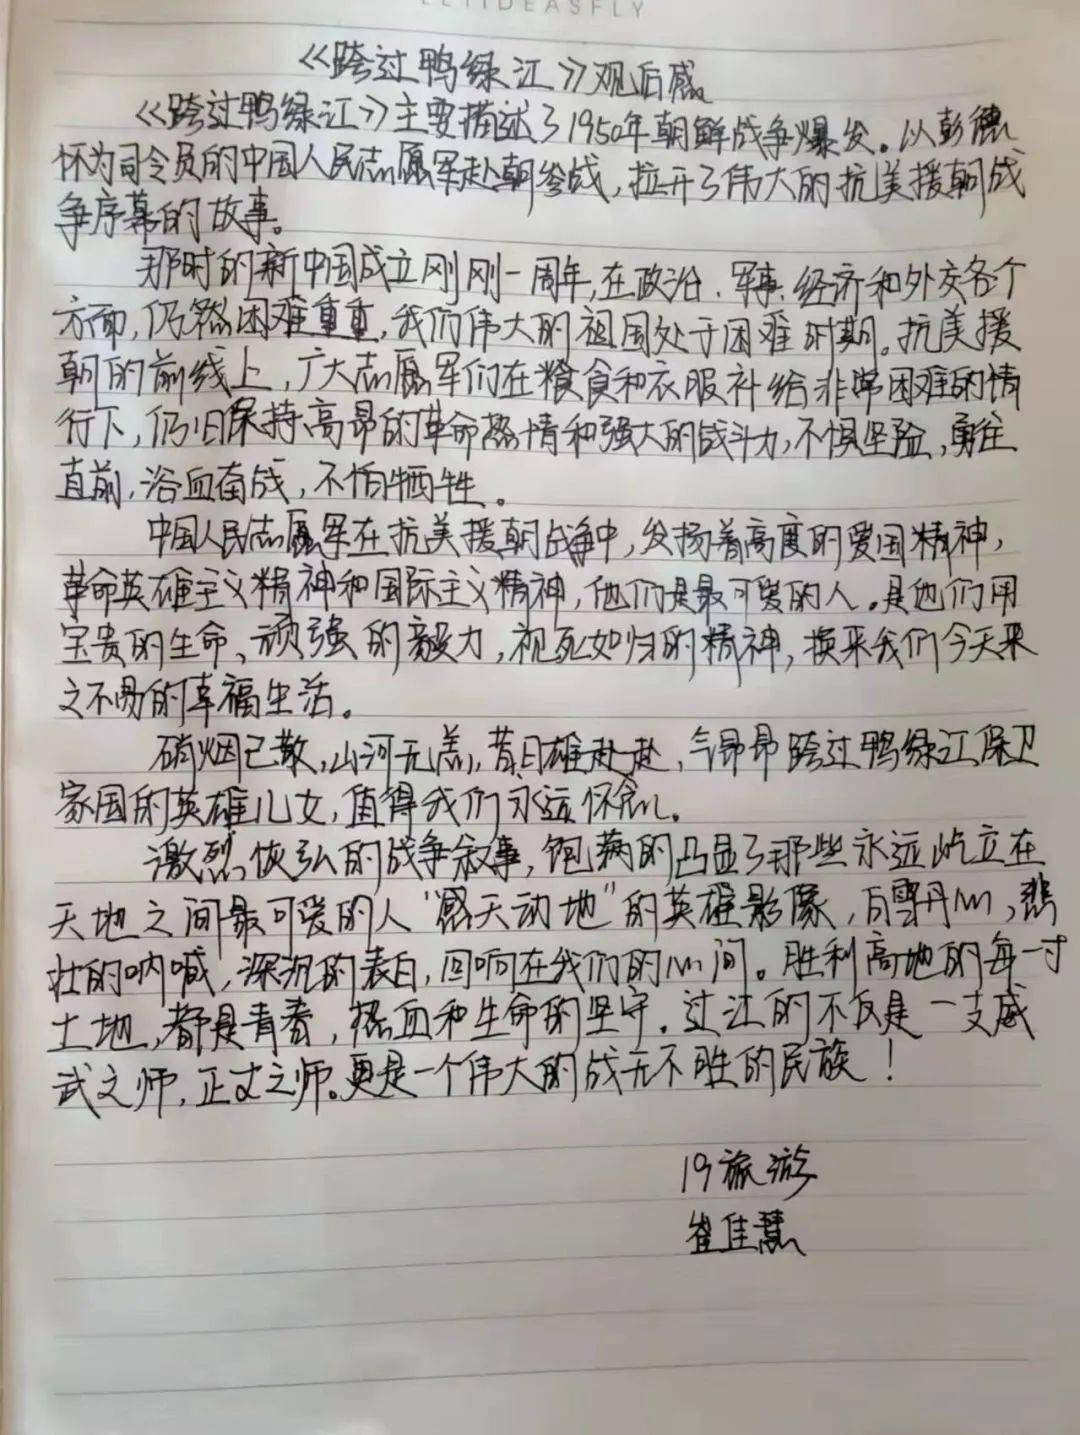 LETIDEASFLY
《跨过鸭绿江》观后感
《跨过鸭绿江》主要描述了1950年朝鲜战争爆发。以彭德
怀为司令员的中国人民志愿军赴朝参战，拉开了伟大的抗美援朝战
争序幕的故事。
那时的新中国成立刚刚一周年，在政治、军事、经济和外交各个
方面，仍然困难重重，我们伟大的祖国处于困难时期。抗美援
朝的前线上，广大志愿军们在粮食和衣服补给非常困难的情
行下，仍旧保持高昂的革命热情和强大的战斗力，不惧坚险，勇往
直前，浴血奋战，不怕牺牲。
中国人民志愿军在抗美援朝战争中，发扬着高度的爱国精神，
革命英雄主义精神和国际主义精神，他们是最可爱的人。是他们用
宝贵的生命、顽强的毅力，视死如归的精神，换来我们今天来
之不易的幸福生活。
硝烟已散，山河无恙，昔日雄赳赳，气昂昂跨过鸭绿江保卫
家国的英雄儿女，值得我们永远怀念。
激烈恢弘的战争叙事，饱满的凸显了那些永远屹立在
天地之间最可爱的人“感天动地”的英雄影像，白雪丹心，悲
壮的呐喊，深沉的表白，回响在我们的心间。胜利高地的每一寸
土地，都是青春，热血和生命的坚守。过江的不仅是一支威
武之师，正义之师。更是一个伟大的战无不胜的民族！
19旅游
崔佳慧